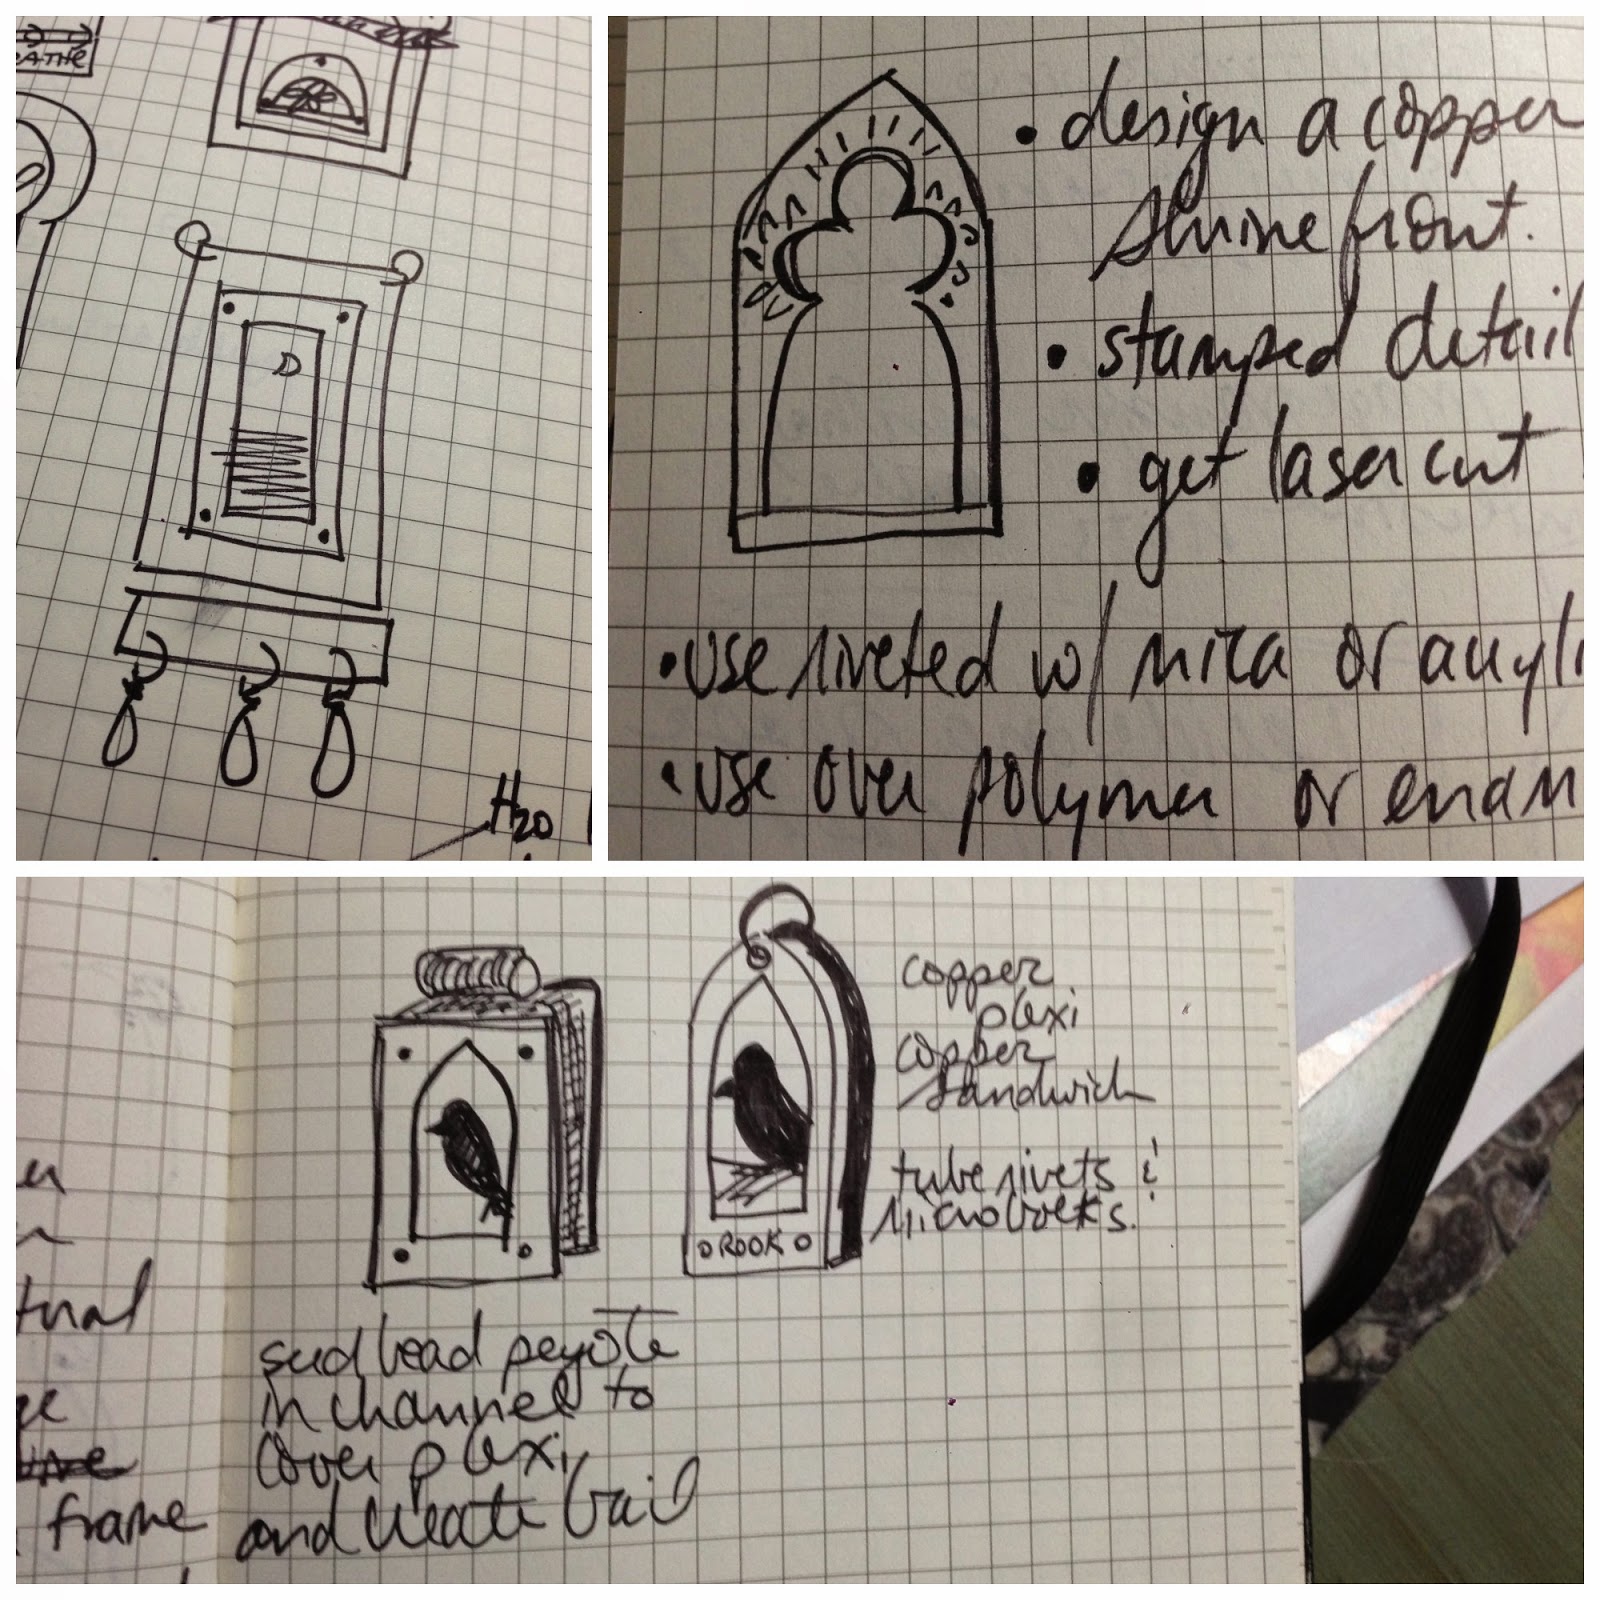 EATHE
D
H2O
• design a copper
shrine front.
• stamped detail
• get laser cut
• use riveted w/ mica or acryli
• use over polymer or enam
copper
plexi
copper
sandwich
tube rivets &
microbolts.
ROOK
seed bead peyote
in channel to
cover plexi
and create bail
tural
frame